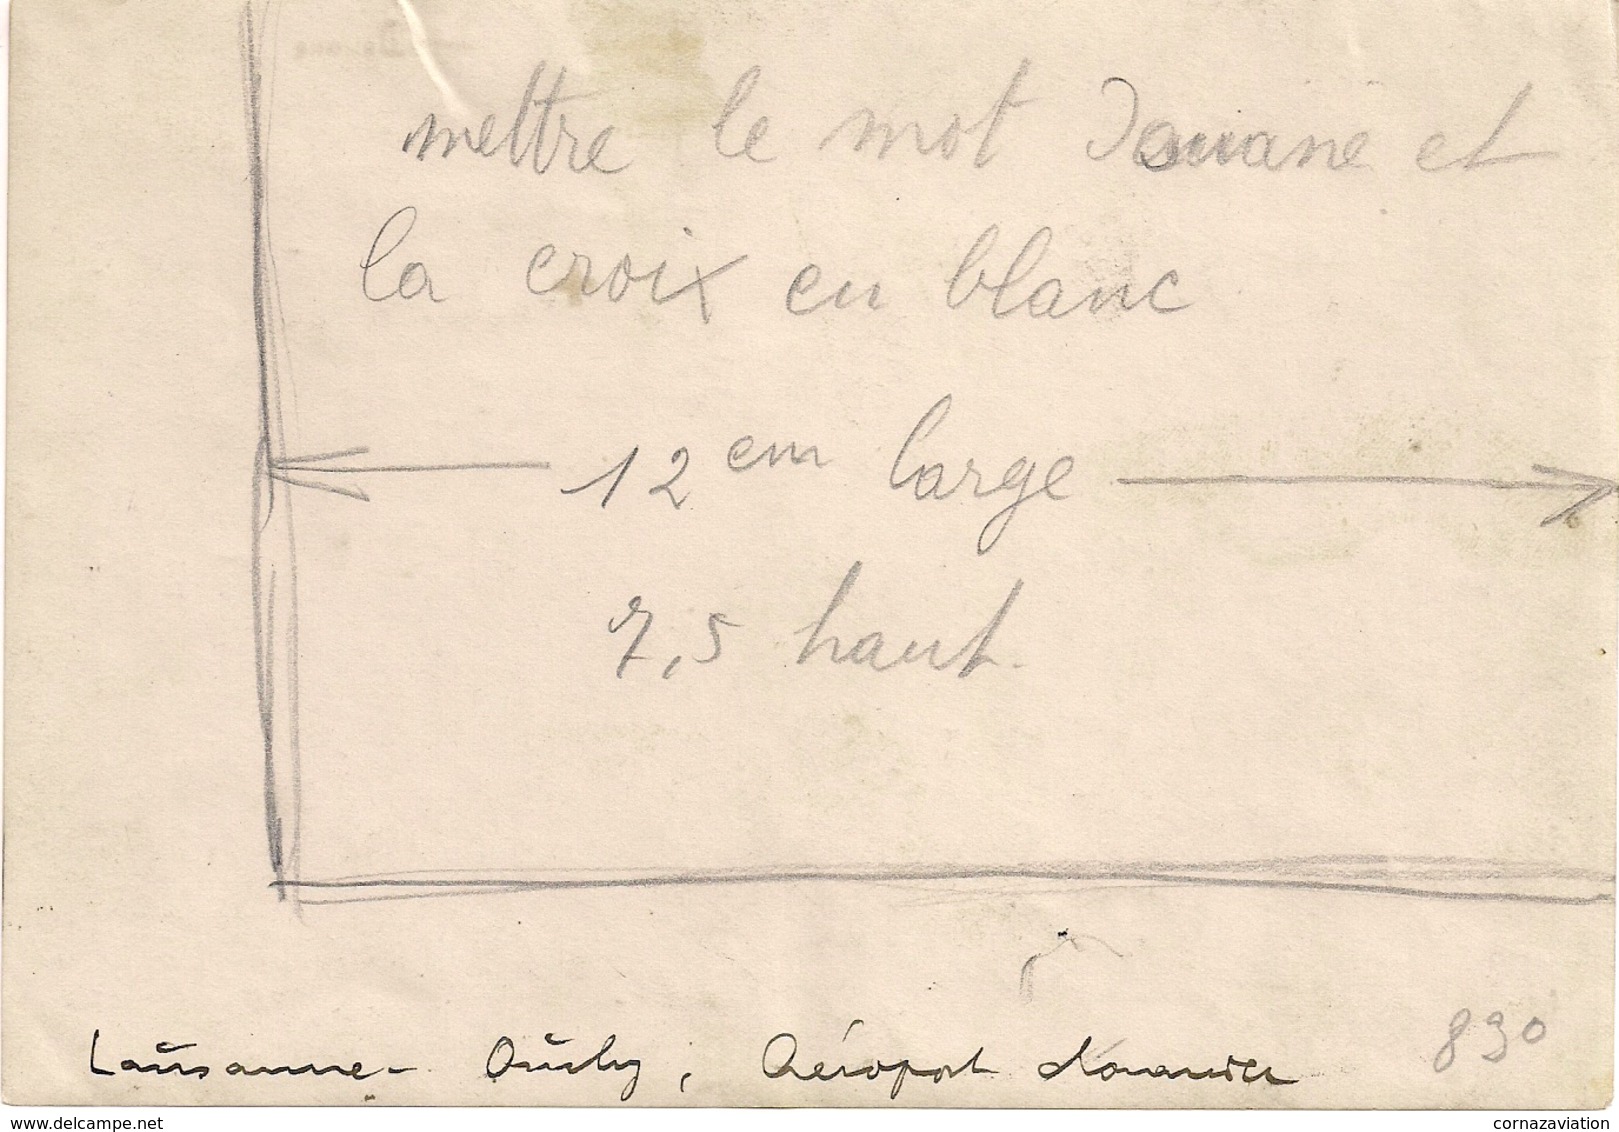 mettre le mot Douane et
la croix en blanc
12 cm large
7,5 haut.
Lausanne - Ouchy, Aéroport douanier
890
delcampe.net
cornazaviation